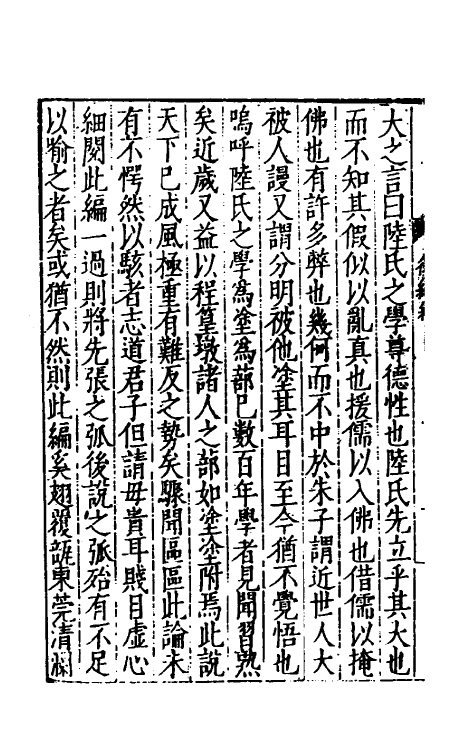 大之言曰陸氏之學尊德性也陸氏先立乎其大也
而不知其假似以亂真也援儒以入佛也借儒以掩
佛也有許多弊也幾何而不中於朱子謂近世人大
被人謾又謂分明被他塗其耳目至今猶不覺悟也
嗚呼陸氏之學為塗為蔀已數百年學者見聞習熟
矣近歲又益以程篁墩諸人之蔀如塗塗附焉此說
天下已成風極重有難反之勢矣驟聞區區此論未
有不愕然以駭者志道君子但請毋貴耳賤目虛心
細閱此編一過則將先張之弧後說之弧殆有不足
以喻之者矣或猶不然則此編奚翅覆誰東莞清瀾